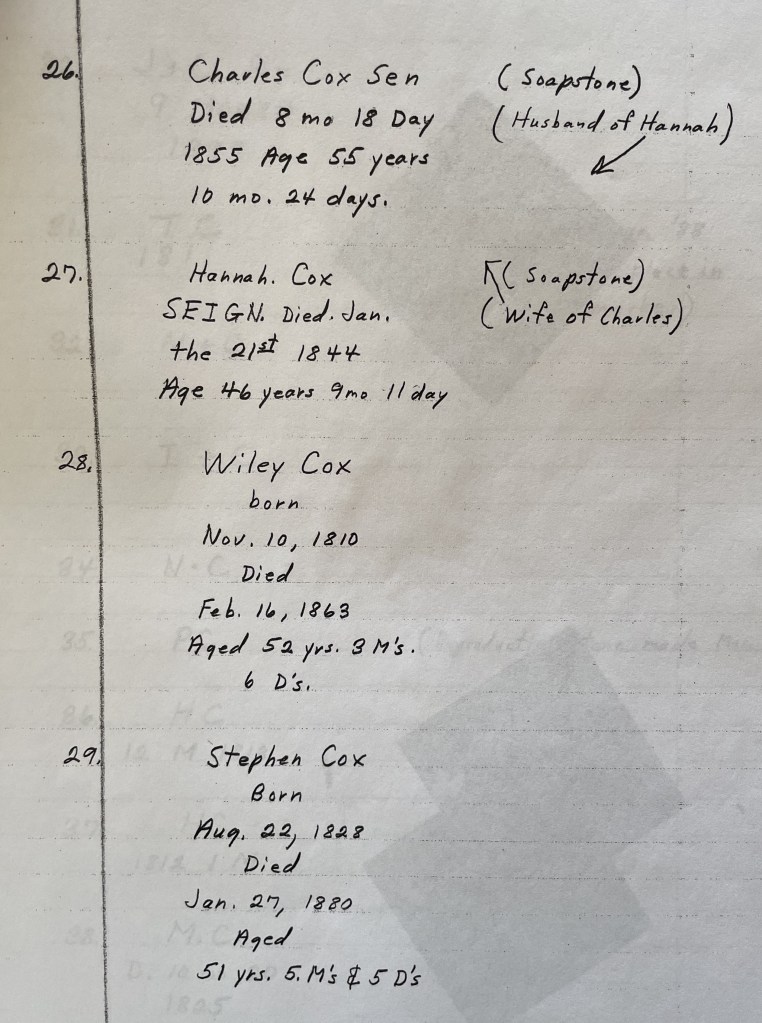 26. Charles Cox Sen (Soapstone)
Died 8 mo 18 Day (Husband of Hannah)
1855 Age 55 years
10 mo. 24 days.
27. Hannah. Cox (Soapstone)
SEIGN. Died. Jan. (Wife of Charles)
the 21st 1844
Age 46 years 9mo 11 day
28. Wiley Cox
born
Nov. 10, 1810
Died
Feb. 16, 1863
Aged 52 yrs. 3 M's.
6 D's.
29. Stephen Cox
Born
Aug. 22, 1828
Died
Jan. 27, 1880
Aged
51 yrs. 5. M's & 5 D's